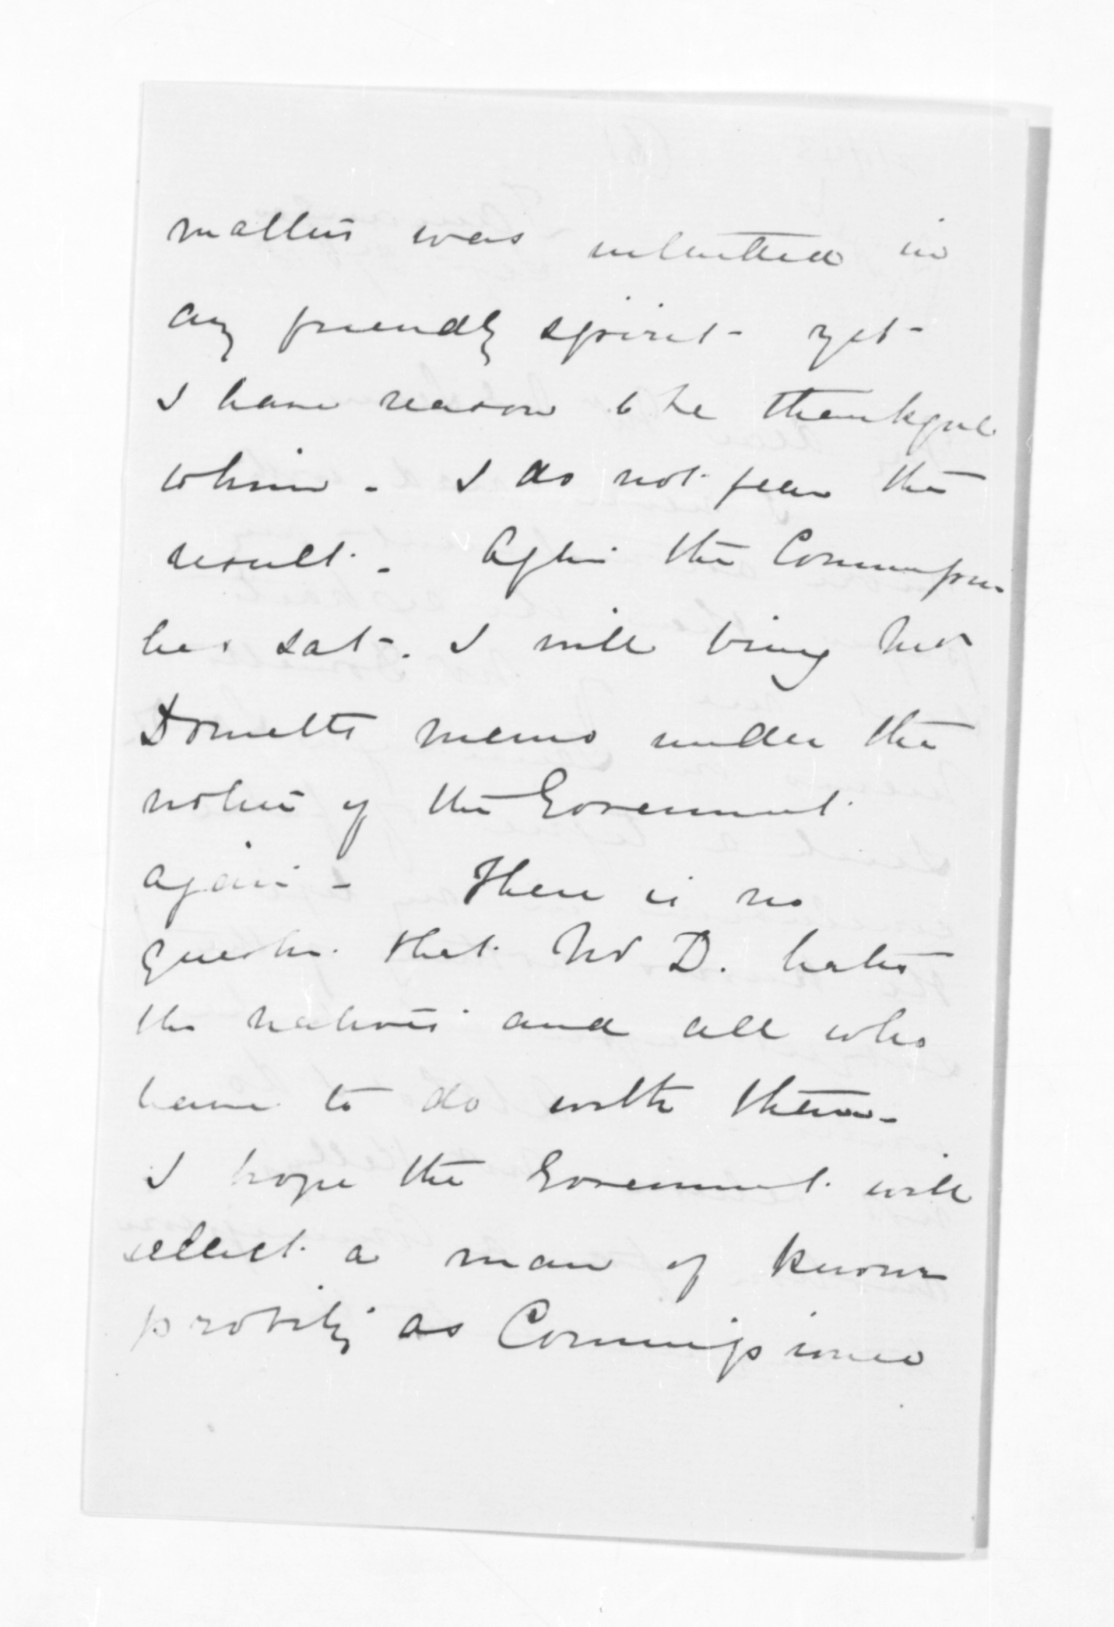 matters was submitted in
any friendly spirit - yet -
I have reason to be thankful
to him - I do not fear the
result. After the Commission
has sat. I will bring Mr
Dometts memo under the
notice of the Government
again - There is no
question that Mr D. hates
the natives and all who
have to do with them -
I hope the Government will
select a man of known
probity as Commissioner